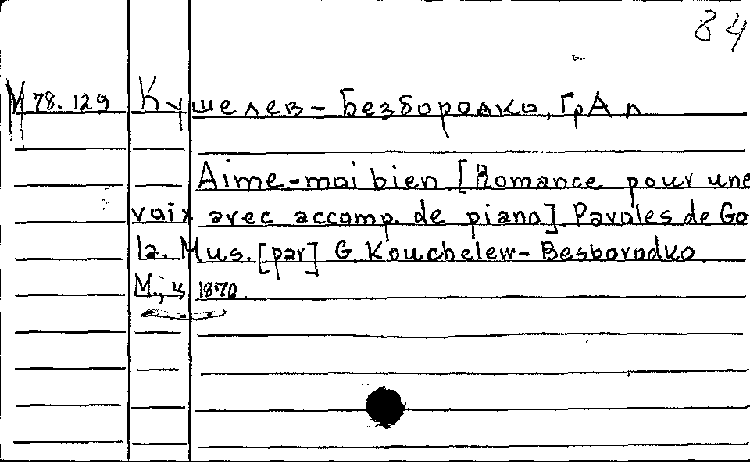 84
M 78.129 Кушелев-Безбородко, Гр. А п
Aime-moi bien [Romance pour une
voix avec accomp. de piano] Paroles de Go
la. Mus. [par] G. Kouchelew-Besborodko.
М., 1870.